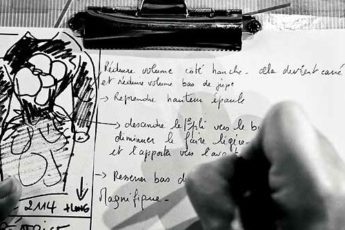 Réduire volume côté hanche. cela devient carré
et réduire volume bas de jupe
→ Reprendre hauteur épaule
→ descendre le pli vers le b
diminuer le
et l'apporter vers l'avant
→ Resserrer bas d
Magnifique.
2114 +LONG